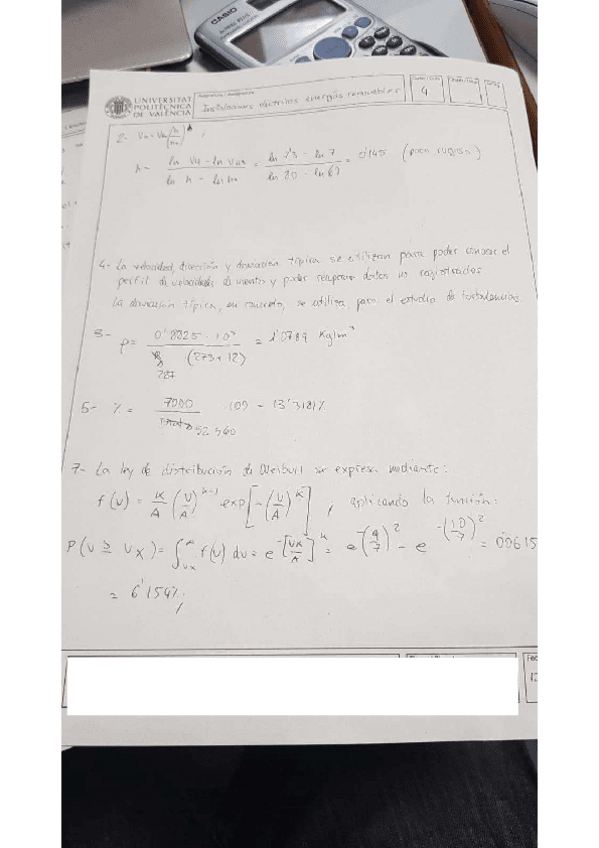 CASIO
UNIVERSITAT
POLITÈCNICA
DE VALÈNCIA
Instalaciones eléctricas energías renovables
4
2- Vh = Vho (h/ho)^α ;
= ln V4 - ln V43 / ln h - ln ho = ln 7'3 - ln 7 / ln 80 - ln 60 = 0'145 (poca rugoso)
4- La velocidad, dirección y desviación típica se utilizan para poder conocer el
perfil de velocidades de viento y poder recuperar datos no registrados
La desviación típica, en concreto, se utiliza para el estudio de turbulencias.
3- ρ = 0'8825 · 10⁵ / 287 (273 + 12) = 1'0789 Kg/m³
5- % = 7000 / 52 560 100 = 13'318%
7- La ley de distribución de Weibull se expresa mediante:
f(v) = K/A (v/A)^(k-1) exp[-(v/A)^k] , aplicando la función:
P(v ≥ vx) = ∫ f(v) dv = e^-[vx/A]^k = e^-(9/7)² - e^-(10/7)² = 0'0615
= 6'154%